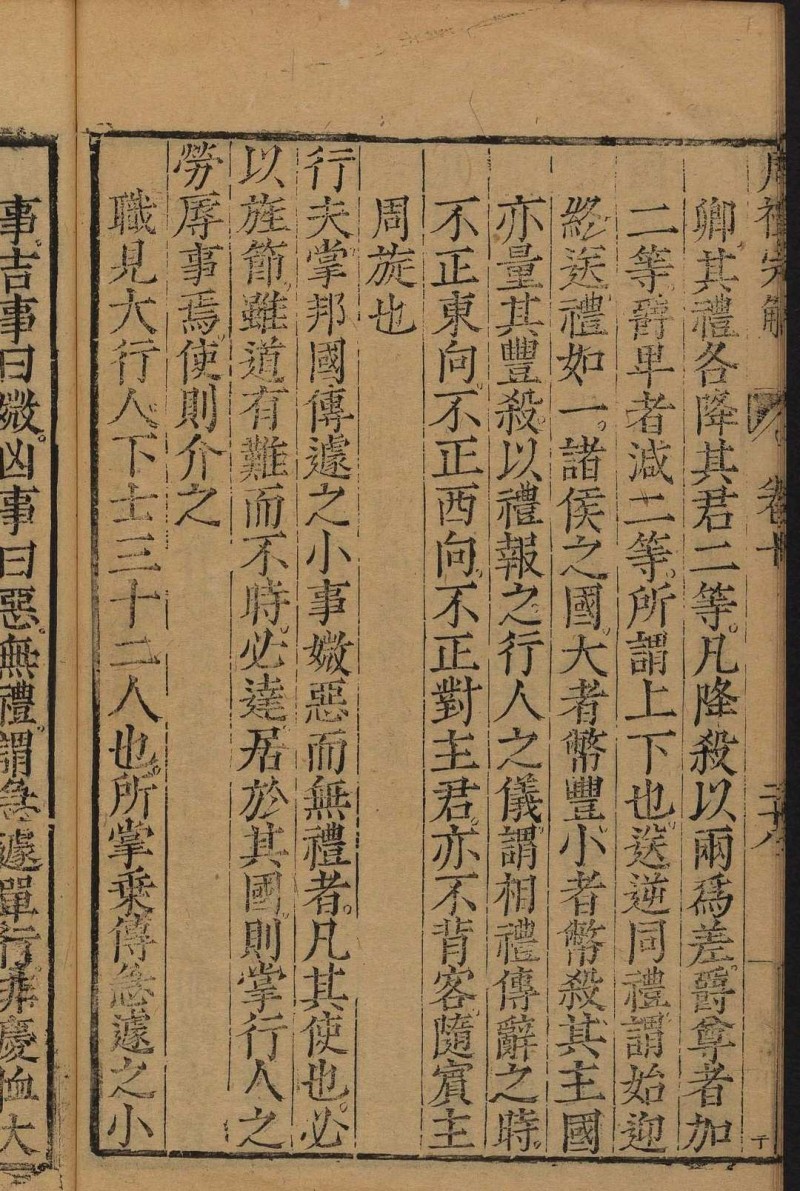 周禮完解 卷十 三十八
卿。其禮各降其君二等。凡降殺以兩爲差。爵尊者加
二等。爵卑者減二等。所謂上下也。送逆同禮。謂始迎
終送禮如一。諸侯之國。大者幣豐。小者幣殺。其主國
亦量其豐殺。以禮報之。行人之儀。謂相禮傳辭之時。
不正東向。不正西向。不正對主君。亦不背客。隨賓主
周旋也
行夫掌邦國傳遽之小事媺惡而無禮者。凡其使也。必
以旌節。雖道有難而不時。必達。居於其國。則掌行人之
勞辱事焉。使則介之
職見大行人。下士三十二人也。所掌乘傳急遽之小
事。吉事曰媺。凶事曰惡。無禮。謂急遽單行。非慶恤大